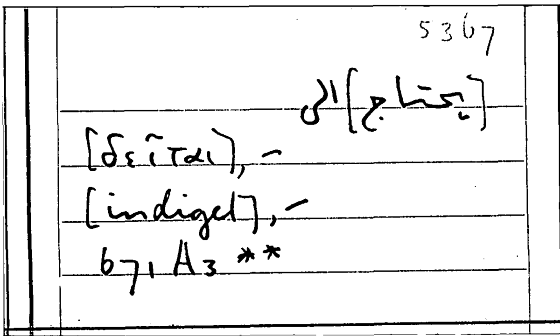 5367
[يحتاج] الى
[δεῖται], -
[indiget], -
671 A3 **